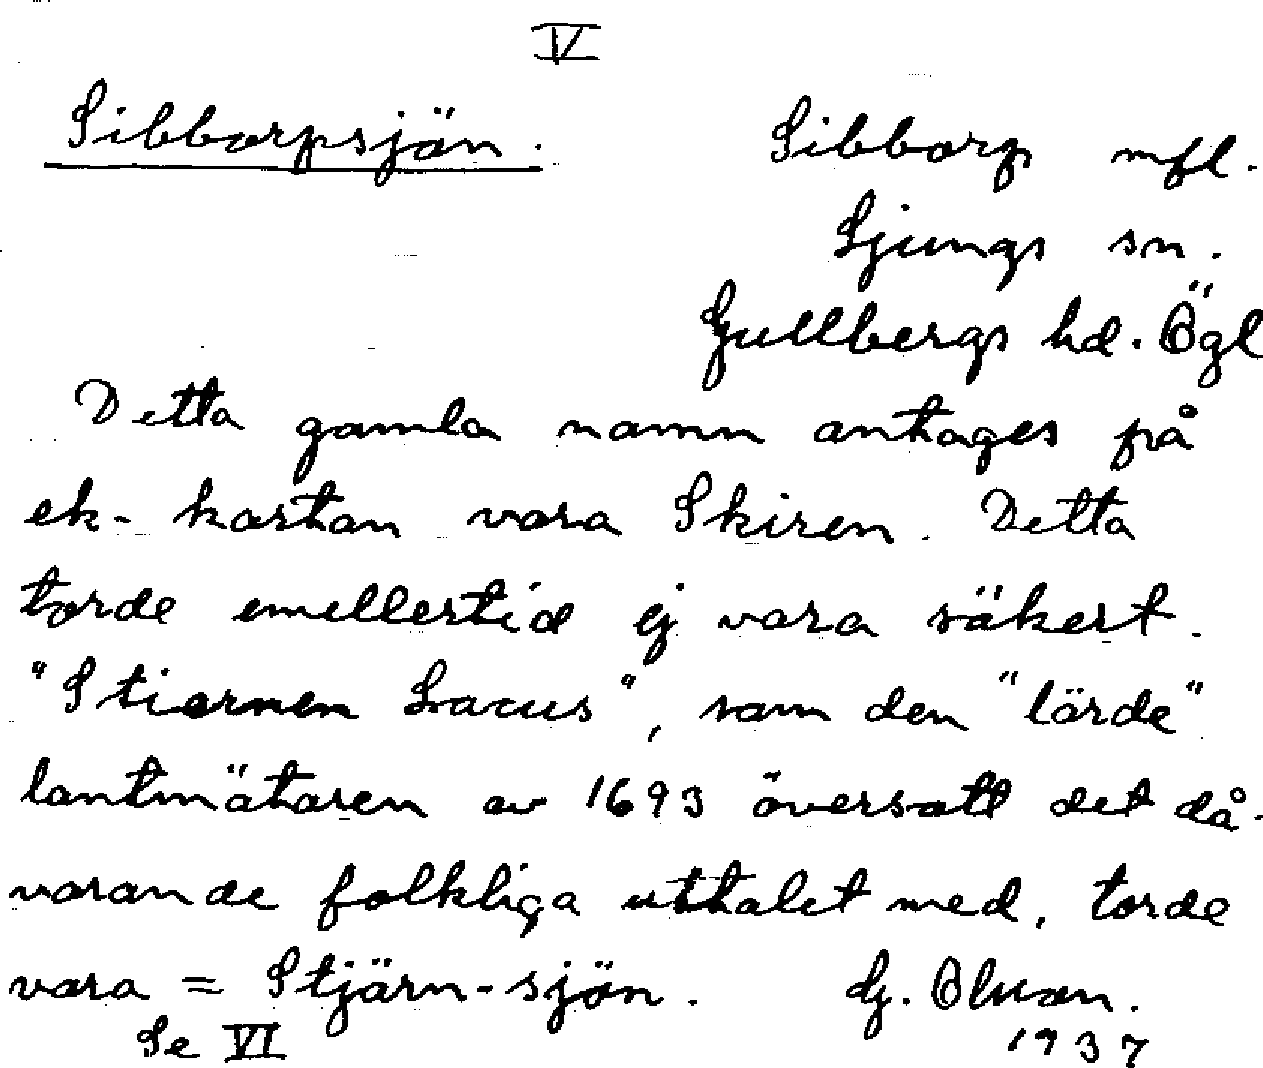 V
Sibborpsjön.
Sibborp mfl.
Ljungs sn.
Gullbergs hd. Ögl
Detta gamla namn antages på
ek-kartan vara Skiren. Detta
torde emellertid ej vara säkert.
"Stiernen Lacus", som den "lärde"
lantmätaren av 1693 översatt det då-
varande folkliga uttalet med, torde
vara = Stjärn-sjön. G. Olsson.
Se VI 1937